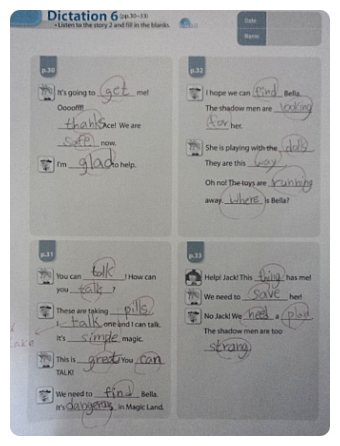 Dictation 6 (pp.30~33)
• Listen to the story 2 and fill in the blanks.
Date
Name
p.30
It's going to get me!
Ooooffff!
thanks Ace! We are
safe now.
I'm glad to help.
p.32
I hope we can find Bella.
The shadow men are looking
for her.
She is playing with the dolls
They are this way
Oh no! The toys are running
away. where is Bella?
p.31
You can talk! How can
you talk?
These are taking pills.
I talk one and I can talk.
It's simple magic.
This is great You can
TALK!
We need to find Bella.
It's dangerous in Magic Land.
p.33
Help! Jack! This thing has me!
We need to save her!
No Jack! We need a plan
The shadow men are too
strong